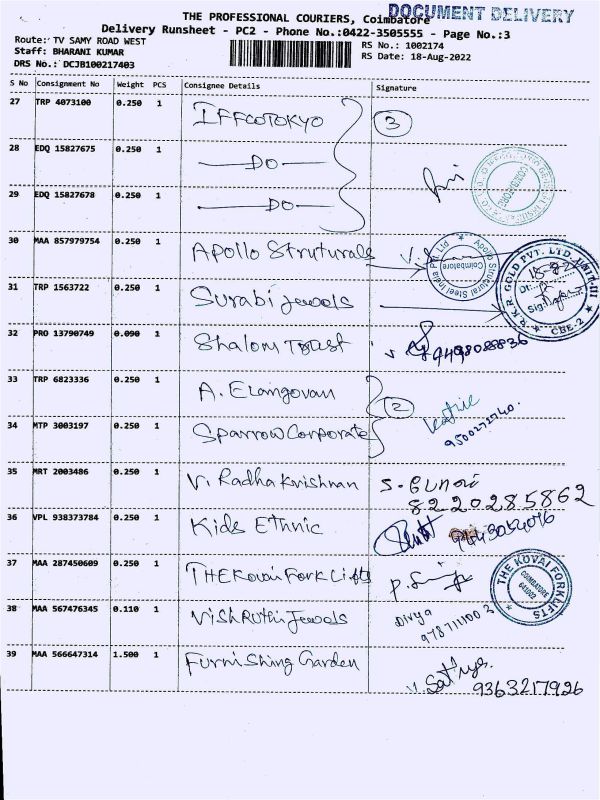 THE PROFESSIONAL COURIERS, Coimbatore
DOCUMENT DELIVERY
Delivery Runsheet - PC2 - Phone No.:0422-3505555 - Page No.:3
Route: TV SAMY ROAD WEST
RS No.: 1002174
Staff: BHARANI KUMAR
RS Date: 18-Aug-2022
DRS No.: DCJB100217403
S No Consignment No Weight PCS Consignee Details Signature
27 TRP 4073100 0.250 1 IFFCOTOKYO 3
28 EDQ 15827675 0.250 1 —DO—
29 EDQ 15827678 0.250 1 —DO—
COIMBATORE
30 MAA 857979754 0.250 1 Apollo Struturals
Apollo Structural Steel India Pvt. Ltd
Coimbatore
31 TRP 1563722 0.250 1 Surabi Jewels
R.K.R. GOLD PVT. LTD. UNIT-III
Dt:
Sig:
CBE-2
32 PRO 13790749 0.090 1 Shalom Trast 9498088836
33 TRP 6823336 0.250 1 A. Elangovan
2
34 MTP 3003197 0.250 1 Sparrow Corporate
9500272740.
35 MRT 2003486 0.250 1 V. Radha Krishnan
8220285862
36 VPL 938373784 0.250 1 Kids Ethnic 9443054076
37 MAA 287450609 0.250 1 THE Kovai Fork Lifts
THE KOVAI FORKLIFTS
COIMBATORE
641002
38 MAA 567476345 0.110 1 Vish Ruthi Jewels Divya
9787111002
39 MAA 566647314 1.500 1 Furnishing Garden V. Sathya.
9363217926